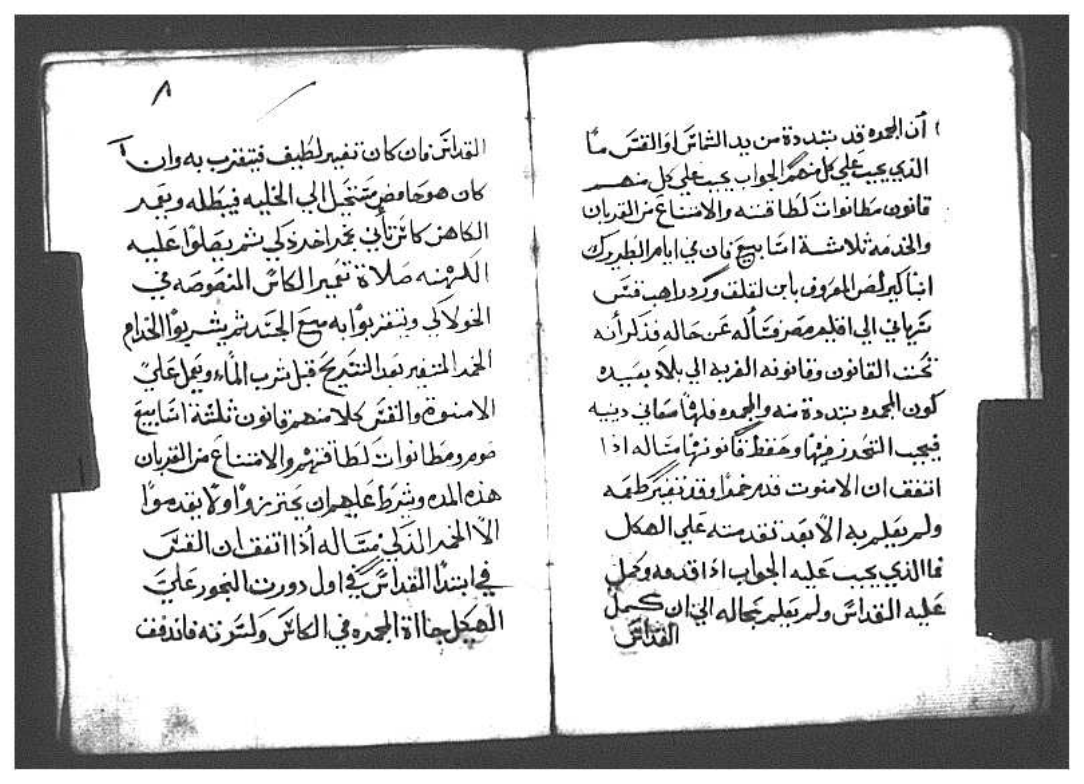 ان الجمره قد تبددة من يد الشماس او القس ما
الذي يجب علي كل منهم الجواب يجب علي كل منهم
قانون مطانوات كطاقته والامتناع من القربان
والخدمه ثلاثة اسابيع فان في ايام البطريرك
انبا كيرلص المعروف بابن لقلق ورد راهب قس
سرياني الي اقليم مصر فساله عن حاله فذكر انه
تحت القانون وقانونه الغربه الي بلاد بعيده
كون الجمره تبددة منه والجمره فلها معاني دينيه
فيجب التحرز منها وحفظ قانونها مساله اذا
اتفق ان الامنوت قدم خمرا وقد تغير طعمه
ولم يعلم به الا بعد تقدمته علي الهيكل
فما الذي يجب عليه الجواب اذا قدمه وكمل
عليه القداس ولم يعلم بحاله الي ان كمل
القداس
٨
القداس فان كان تغير لطيف فيتقرب به وان
كان هو حامض مستحيل الي الخليه فيبطله ويعمر
الكاهن كاس تاني بخمر اخر ذكي ثم يصلوا عليه
الكهنه صلاة تعمير الكاس المنصوصه في
الخولاكي ويتقربوا به ميع الجسد ثم يشربوا الخدام
الخمر المتغير بعد التسريح قبل شرب الماء ويعمل علي
الامنوة والقس كلا منهم قانون ثلثة اسابيع
صوم ومطانوات كطاقتهم والامتناع من القربان
هذه المده وشرط عليهم ان يحترزوا ولا يقدموا
الا الخمر الذكي مساله اذا اتفق ان القس
في ابتدا القداس في اول دورت البخور علي
الهيكل جاأة الجمره في الكاس وكسرته فاندفق